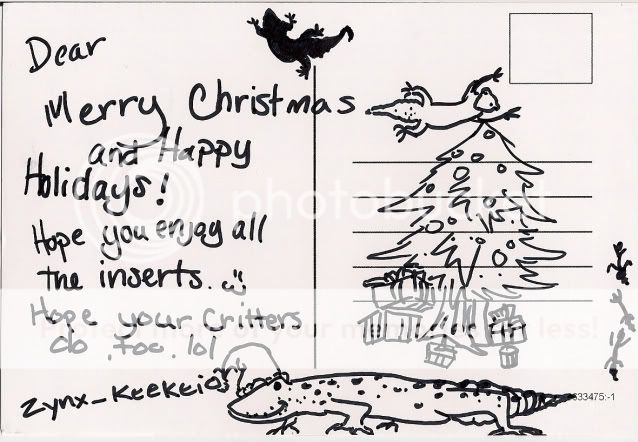 Dear
Merry Christmas
and Happy
Holidays!
Hope you enjoy all
the inserts.
Hope your Critters
do too lol
Zynx_Keekeio
photobucket
Protect more of your memories for less!